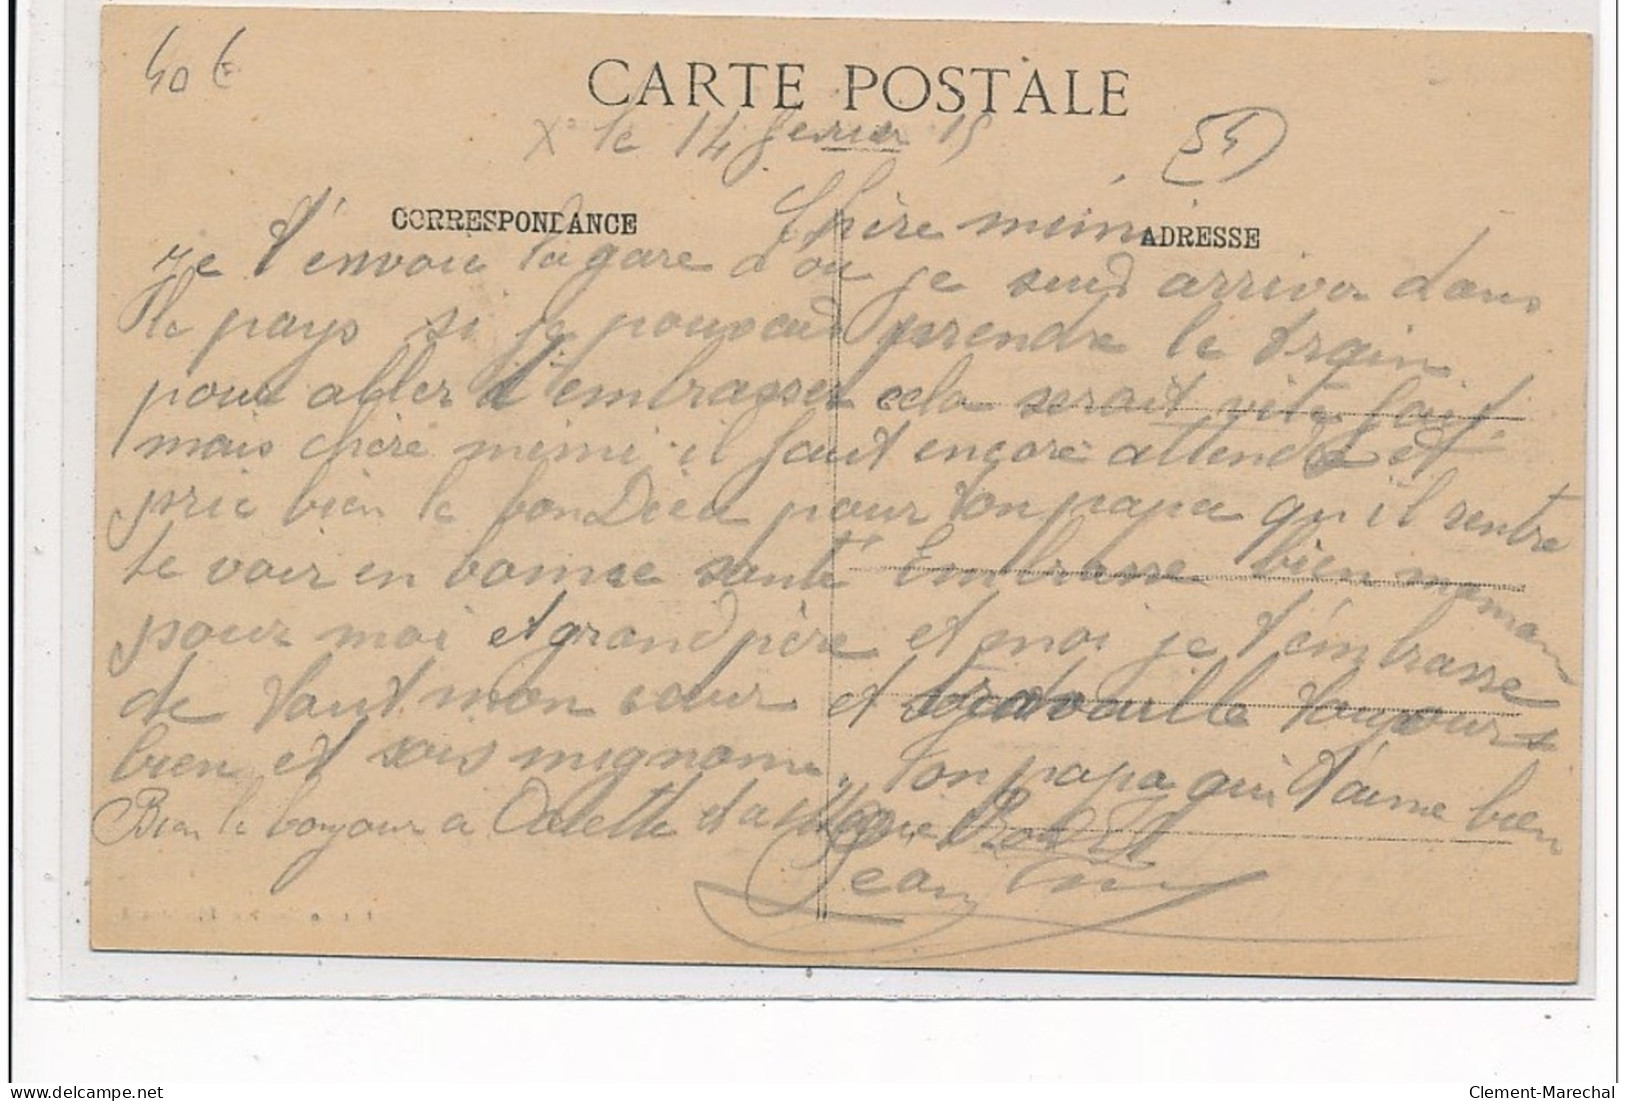 40 €
CARTE POSTALE
X° le 14 fevrier 15
54
CORRESPONDANCE
ADRESSE
Chère mimi
je t'envoie la gare d'ou je suis arriver dans
le pays si je pouvais prendre le train
pour aller t'embrasser cela serait vite fait
mais chère mimi il faut encore attendre et
prie bien le bon Dieu pour ton papa qu'il rentre
te voir en bonne santé Embrasse bien maman
pour moi et grand père et moi je t'embrasse
de tout mon cœur et travaille toujours
bien et sois mignonne, ton papa qui t'aime bien
Bien le bonjour a Odette et a
Jean
Clement-Marechal